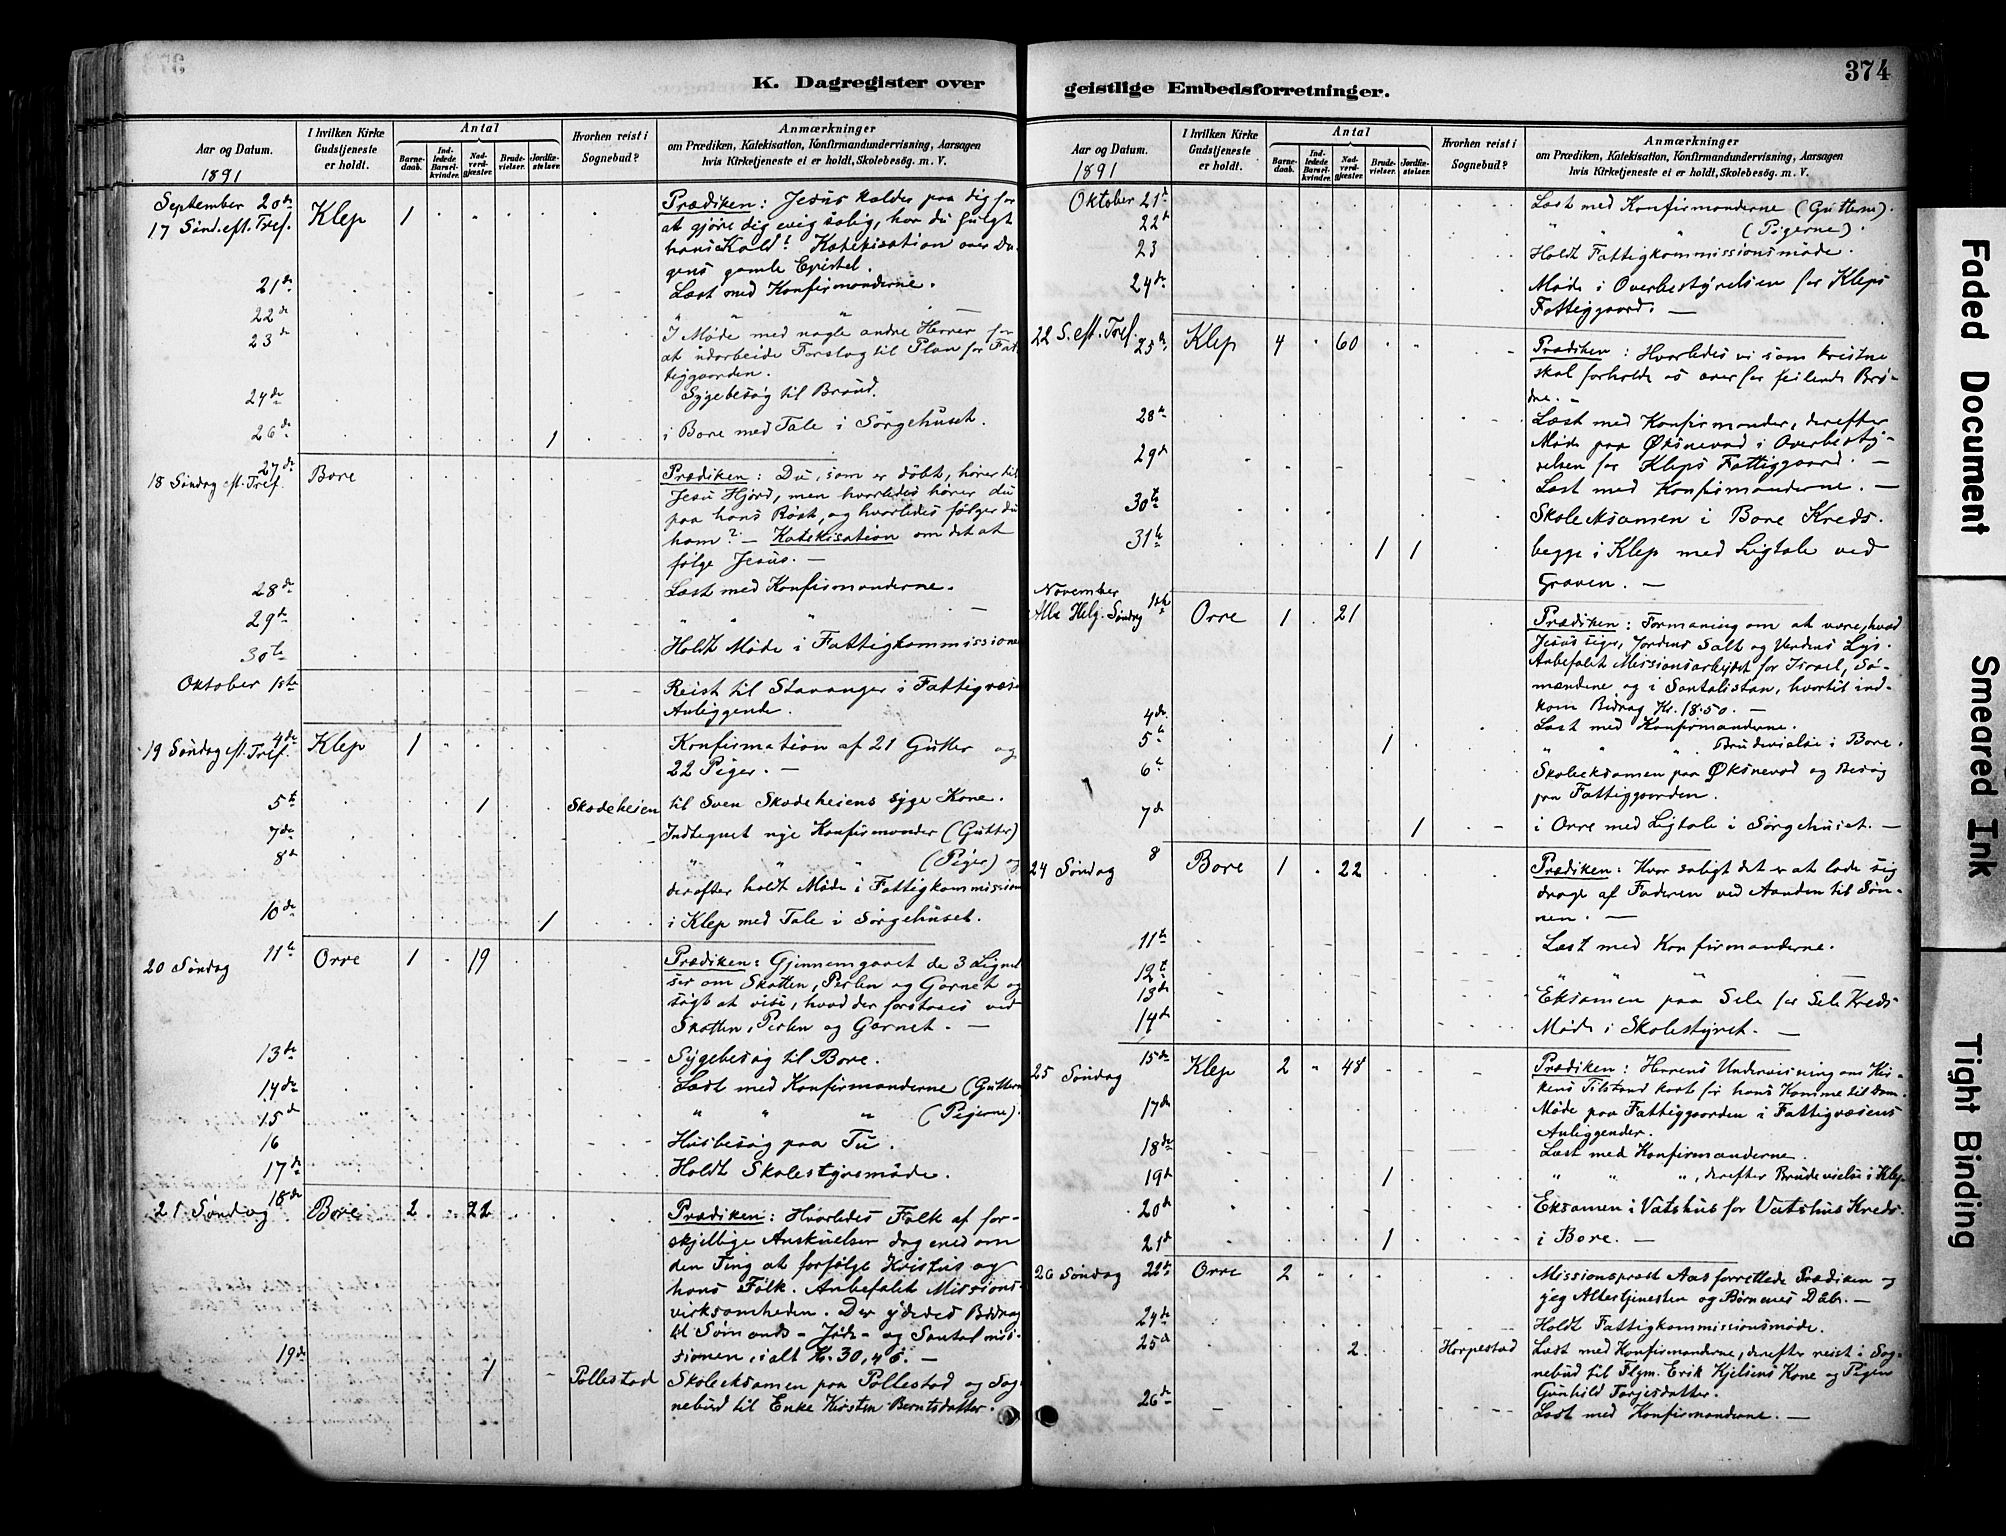 K. Dagregister over
Aar og Datum.
I hvilken Kirke Gudstjeneste er holdt.
Antal
Barne-daab.
Ind-ledede Barsel-kvinder.
Nad-verd-gjæster.
Brude-vielser.
Jordfæ-stelser.
Hvorhen reist i Sognebud?
Anmærkninger
om Prædiken, Katekisation, Konfirmandundervisning, Aarsagen
hvis Kirketjeneste ei er holdt, Skolebesøg. m. V.
1891
September 20de Prædiken: Jesus kalder paa dig for
17 Sønd. eft. Tref. Klep 1 at gjøre dig evig salig, har du fulgt
hans Kald? Katekisation over Da-
gens gamle Epistel.
21de Læst med Konfirmanderne.
22de " " " —
23de I Møde med nogle andre Herrer for
at udarbeide Forslag til Plan for Fat-
tiggaarden.
24de Sygebesøg til Braud.
26de 1 i Bore med Tale i Sørgehuset.
27de
18 Søndag eft. Tref. Bore Prædiken: Du, som er døbt, hører til
Jesu Hjord, men hvorledes hører du
paa hans Røst, og hvorledes følger du
ham? — Katekisation om det at
følge Jesus. —
28de Læst med Konfirmanderne.
29de " " " —
30te Holdt Møde i Fattigkommissionen
Oktober 1ste Reist til Stavanger i Fattigvæse
Anliggende.
4de
19 Søndag ef. Tref. Klep 1 Konfirmation af 21 Gutter og
22 Piger. —
5te 1 Skadeheien til Sven Skadeheiens syge Kone.
7de Indtegnet nye Konfirmander (Gutter)
8de " " " (Piger) og
derefter holdt Møde i Fattigkommission
10de 1 i Klep med Tale i Sørgehuset.
11te
20 Søndag Orre 1 19 Prædiken: Gjennemgaaet de 3 Lignel
ser om Skatten, Perlen og Garnet og
søgt at vise, hvad der forstaaes ved
Skatten, Perlen og Garnet. —
13de Sygebesøg til Bore.
14de Læst med Konfirmanderne (Gutterne
15de " " " (Pigerne).
16 Husbesøg paa Tu.
17de Holdt Skolestyrsmøde.
18de
21 Søndag Bore 2 22 Prædiken: Hvorledes Folk af for-
skjellige Anskuelser dog ened om
den Ting at forfølge Kristus og
hans Folk. Anbefalet Missions
virksomheden. Der ydedes Bidrag
til Sømands- Jøde- og Santalmis-
sionen, ialt Kr. 30,46. —
19de 1 Pollestad Skoleeksamen paa Pollestad og Sog
nebud til Enke Kirsten Berntsdatter.
374
geistlige Embedsforretninger.
Aar og Datum.
I hvilken Kirke Gudstjeneste er holdt.
Antal
Barne-daab.
Ind-ledede Barsel-kvinder.
Nad-verd-gjæster.
Brude-vielser.
Jordfæ-stelser.
Hvorhen reist i Sognebud?
Anmærkninger
om Prædiken, Katekisation, Konfirmandundervisning, Aarsagen
hvis Kirketjeneste ei er holdt, Skolebesøg. m. V.
1891
Oktober 21de Læst med Konfirmanderne (Gutterne).
22de " " " (Pigerne).
23 Holdt Fattigkommissionsmøde.
24de Møde i Overbestyrelsen for Kleps
Fattiggaard. —
22 S. eft. Tref. 25de Klep 4 60 Prædiken: Hvorledes vi som kristne
skal forholde os overfor feilende Brø-
dre. —
28de Læst med Konfirmander, derefter
Møde paa Øksnevad i Overbesty-
relsen for Kleps Fattiggaard. —
29de Læst med Konfirmanderne. —
30te Skoleeksamen i Bore Kreds.
31te 1 1 begge i Klep med Ligtale ved
Graven. —
November
Alle Helg. Søndag 1ste Orre 1 21 Prædiken: Formaning om at være, hvad
Jesus siger, Jordens Salt og Verdens Lys.
Anbefalet Missionsarbejdet for Israel, Sø-
mændene og i Santalistan, hvortil ind-
kom Bidrag Kr. 18.50. —
4de Læst med Konfirmanderne.
5te 1 " " " Brudevielse i Bore.
6te Skoleeksamen paa Øksnevad og Besøg
paa Fattiggaarden.
7de 1 i Orre med Ligtale i Sørgehuset. —
8
24 Søndag Bore 1 22 Prædiken: Hvor saligt det er at lade sig
drage af Faderen ved Aanden til Søn-
nen. —
11te Læst med Konfirmanderne.
12te " " " —
13de Eksamen paa Sele for Sele Kreds
14de Møde i Skolestyret. —
15de
25 Søndag Klep 2 48 Prædiken: Herrens Undervisning om Kir-
kens Tilstand kort før hans Komme til Dom.
17de Møde paa Fattiggaarden i Fattigvæsens
Anliggender.
18de Læst med Konfirmanderne.
19de 1 " " ", derefter Brudevielse i Klep.
20de Eksamen i Vatshus for Vatshus Kreds.
21de 1 i Bore. —
26 Søndag 22de Orre 2 Missionsprest Aas forrettede Prædiken og
jeg Altertjenesten og Børnenes Daab. —
24de Holdt Fattigkommissionsmøde.
25de 2 Horpestad Læst med Konfirmanderne, derefter reist i Sog-
nebud til Flym. Erik Kjelsens Kone og Pigen
Gunhild Torjesdatter.
26de Læst med Konfirmanderne. —
Faded Document
Smeared Ink
Tight Binding